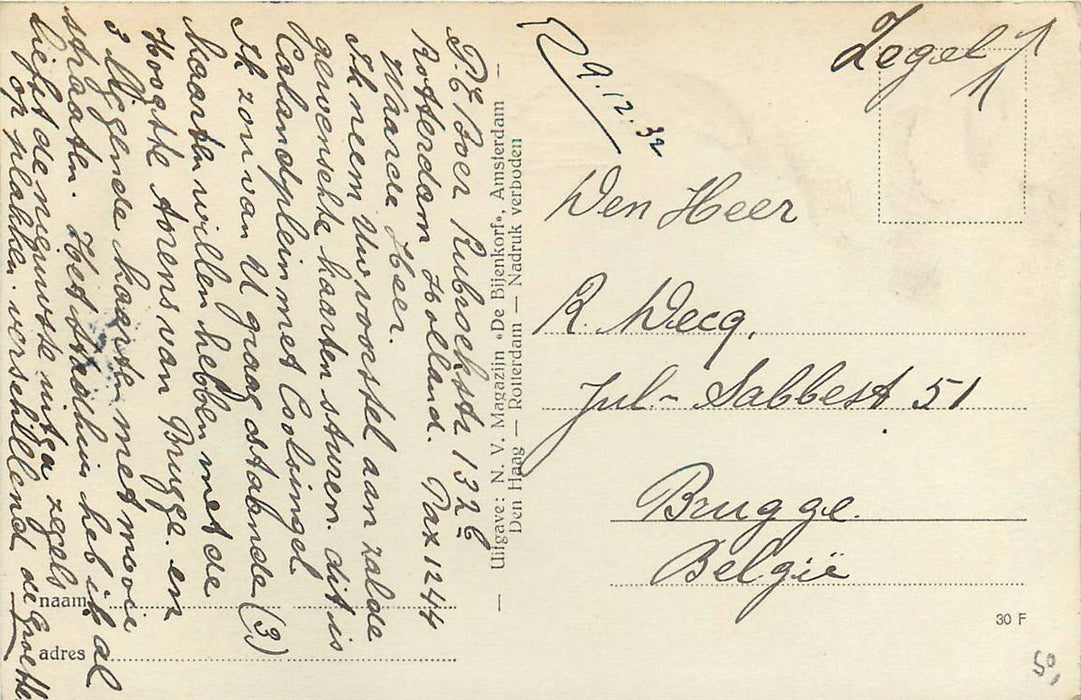 P. de Boer Rubroekstr 132 C
Rotterdam Holland. Pax 1244
Waarde Heer.
Ik neem Uw voorstel aan zulde
gewenschte kaarten sturen. dit is
Calandplein met Coolsingel
Ik zou van U graag ostabende (3)
kaarten willen hebben met de
Hoogste torens van Brugge. en
3 liggende kaarten met mooie
straaten. Het stadhuis heb ik al
Lieft de nieuwste uitga zegels
op plakken verschillend de Groeten
Uitgave: N. V. Magazijn «De Bijenkorf», Amsterdam
Den Haag — Rotterdam — Nadruk verboden
naam
adres
9.12.32
Zegel
Den Heer
R. Decq.
Jul- Sabbest 51
Brugge.
België
30 F
50,